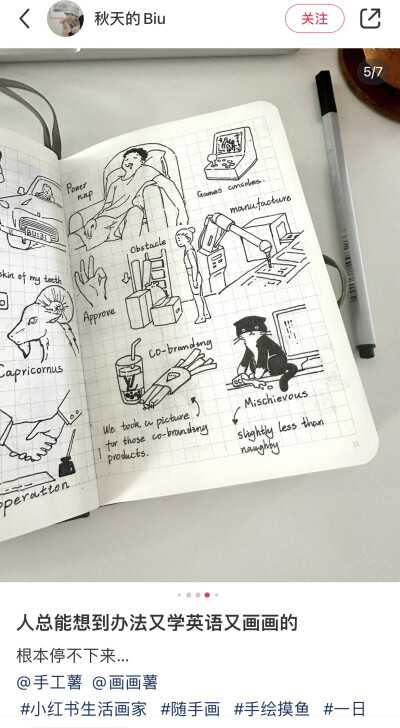 秋天的Biu
关注
5/7
Power
nap
Games consoles.
manufacture
Obstacle
skin of my teeth
Approve
Capricornus
co-branding
LV
We took a picture
for those co-branding
products.
Mischievous
slightly less than
naughty
operation
人总能想到办法又学英语又画画的
根本停不下来...
@手工薯 @画画薯
#小红书生活画家 #随手画 #手绘摸鱼 #一日